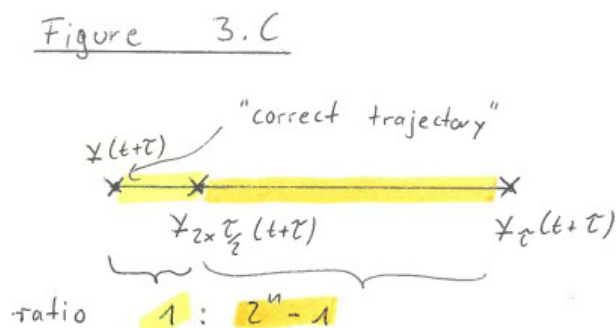 Figure 3.C
"correct trajectory"
y(t+τ)
y₂ₓ τ/2 (t+τ)
y_τ(t+τ)
ratio 1 : 2ⁿ - 1